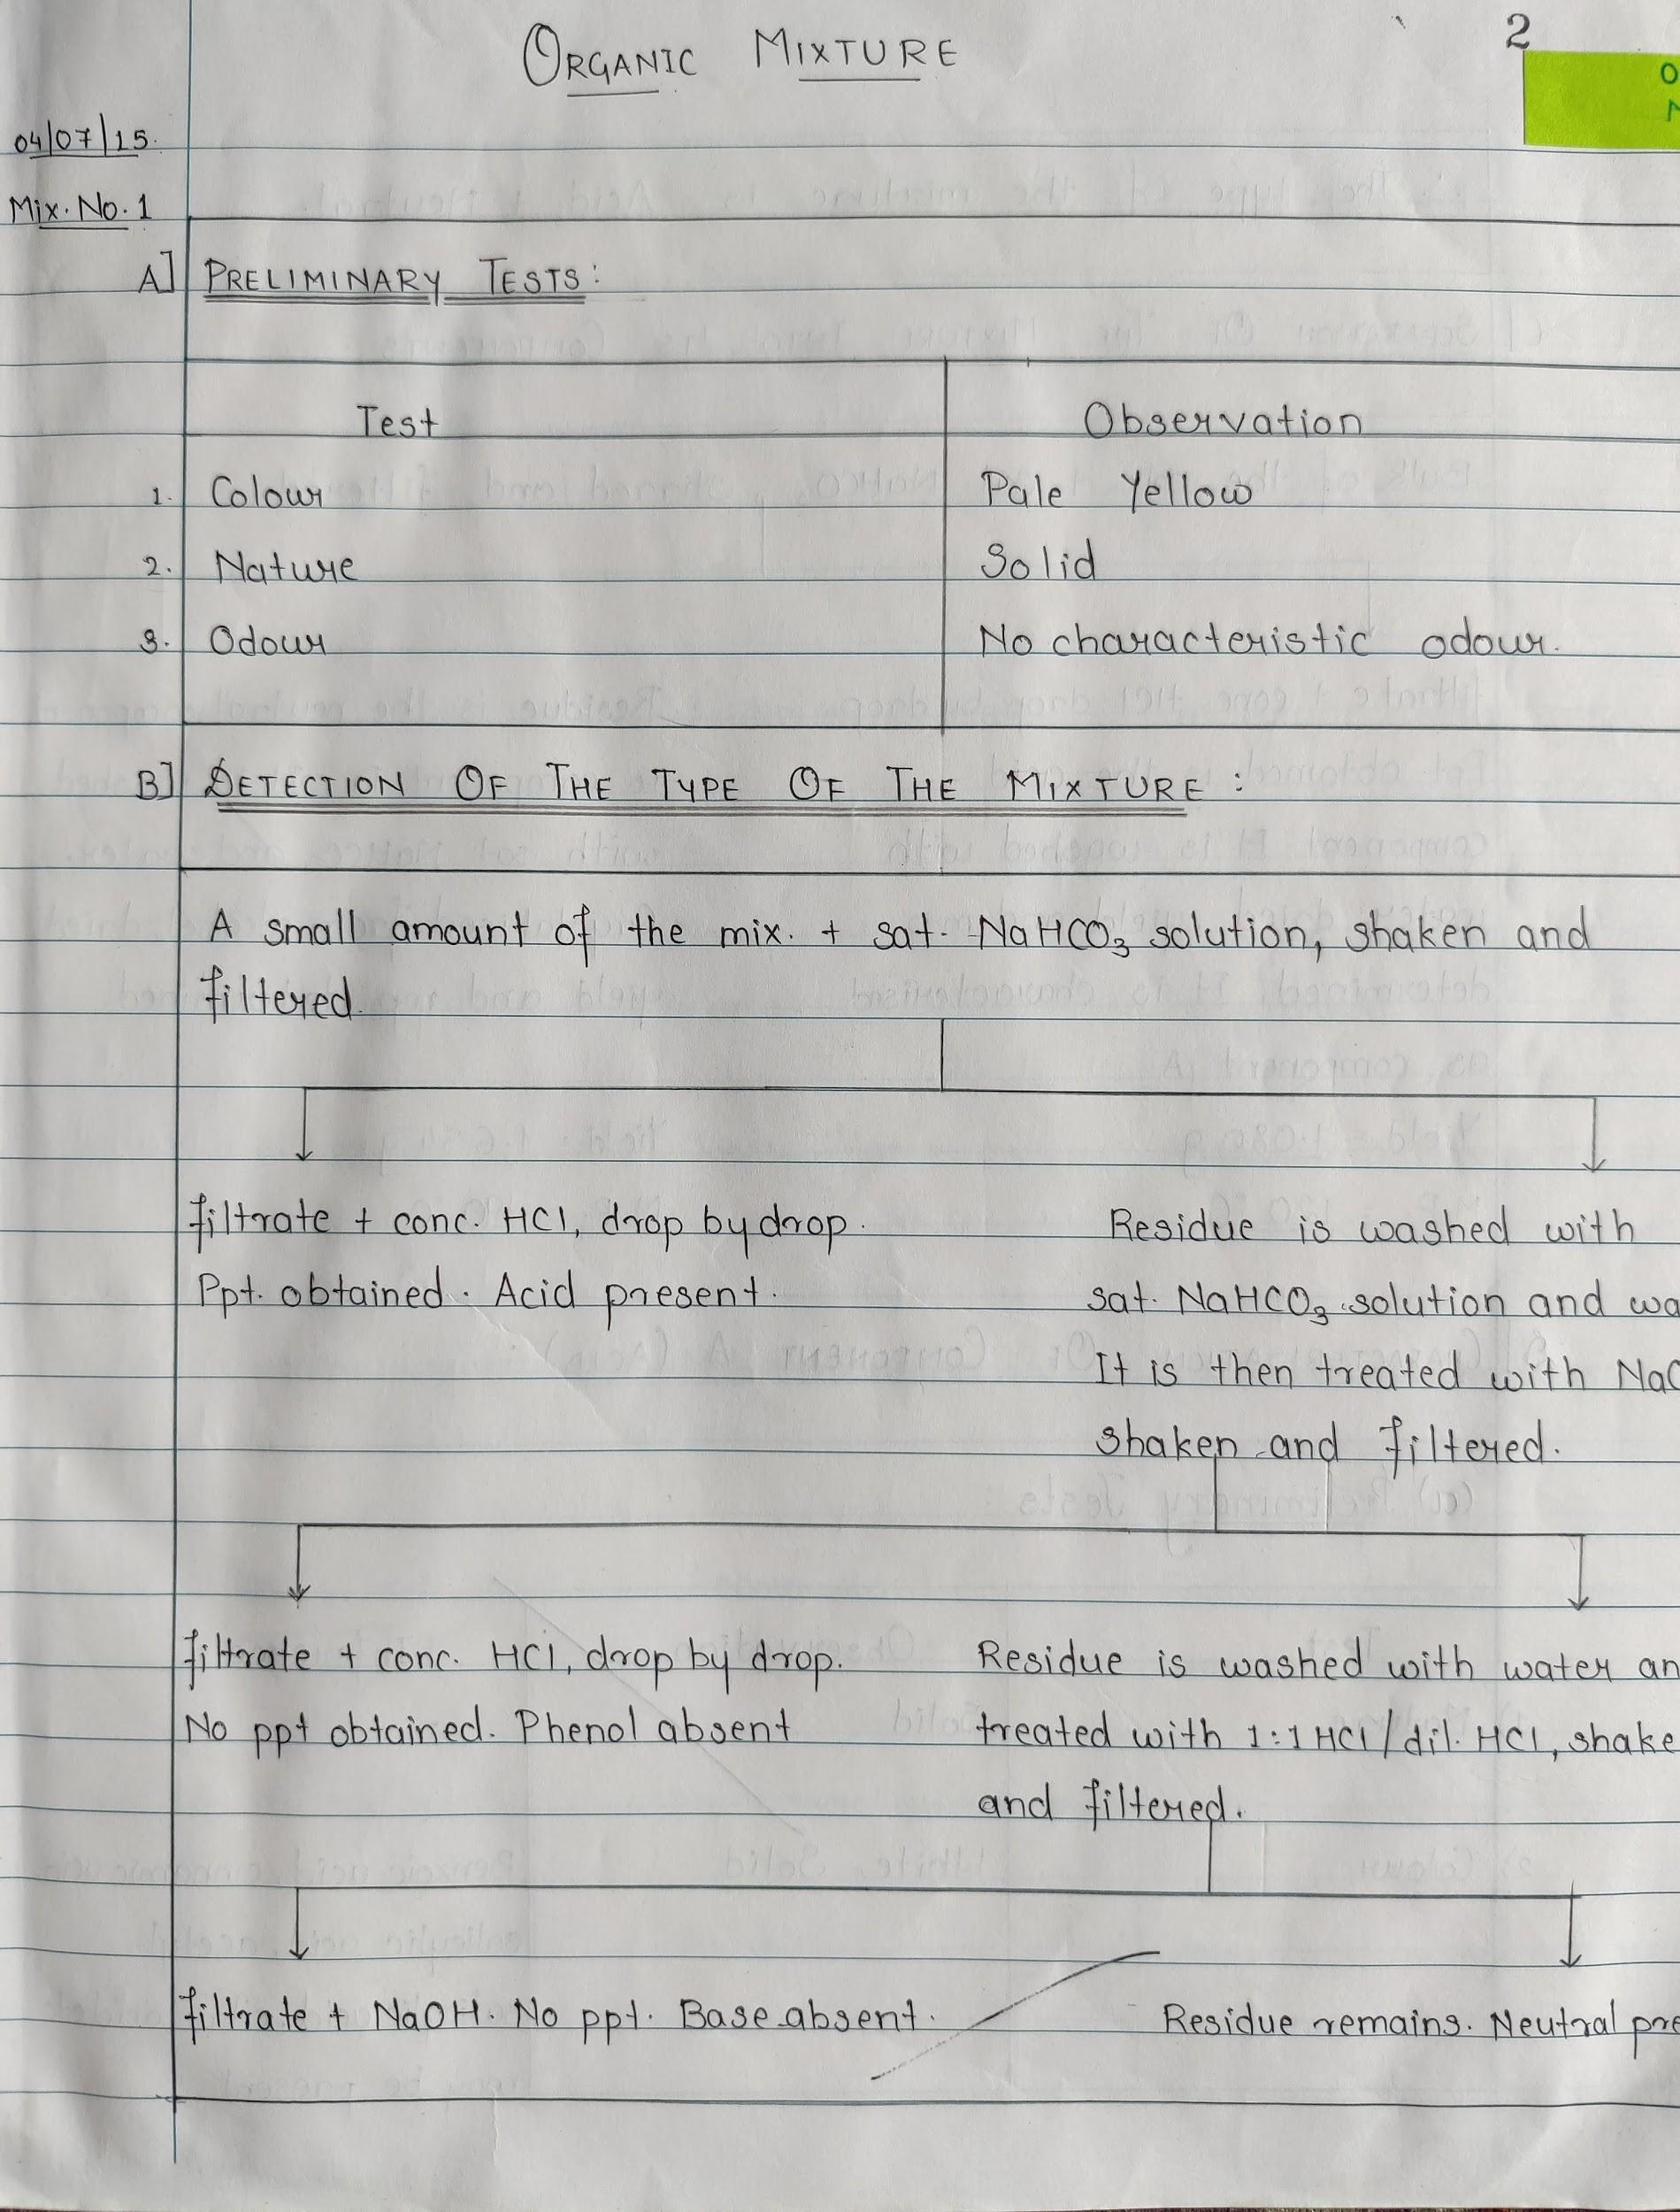 ORGANIC MIXTURE
2
04/07/15.
Mix. No. 1
A] PRELIMINARY TESTS:
Test Observation
1. Colour Pale Yellow
2. Nature Solid
3. Odour No characteristic odour.
B] DETECTION OF THE TYPE OF THE MIXTURE :
A small amount of the mix. + sat. NaHCO₃ solution, shaken and
filtered.
filtrate + conc. HCl, drop by drop. Residue is washed with
Ppt. obtained. Acid present. sat. NaHCO₃ solution and wa
It is then treated with Na
shaken and filtered.
filtrate + conc. HCl, drop by drop. Residue is washed with water an
No ppt obtained. Phenol absent treated with 1:1 HCl/dil. HCl, shake
and filtered.
filtrate + NaOH. No ppt. Base absent. Residue remains. Neutral pre